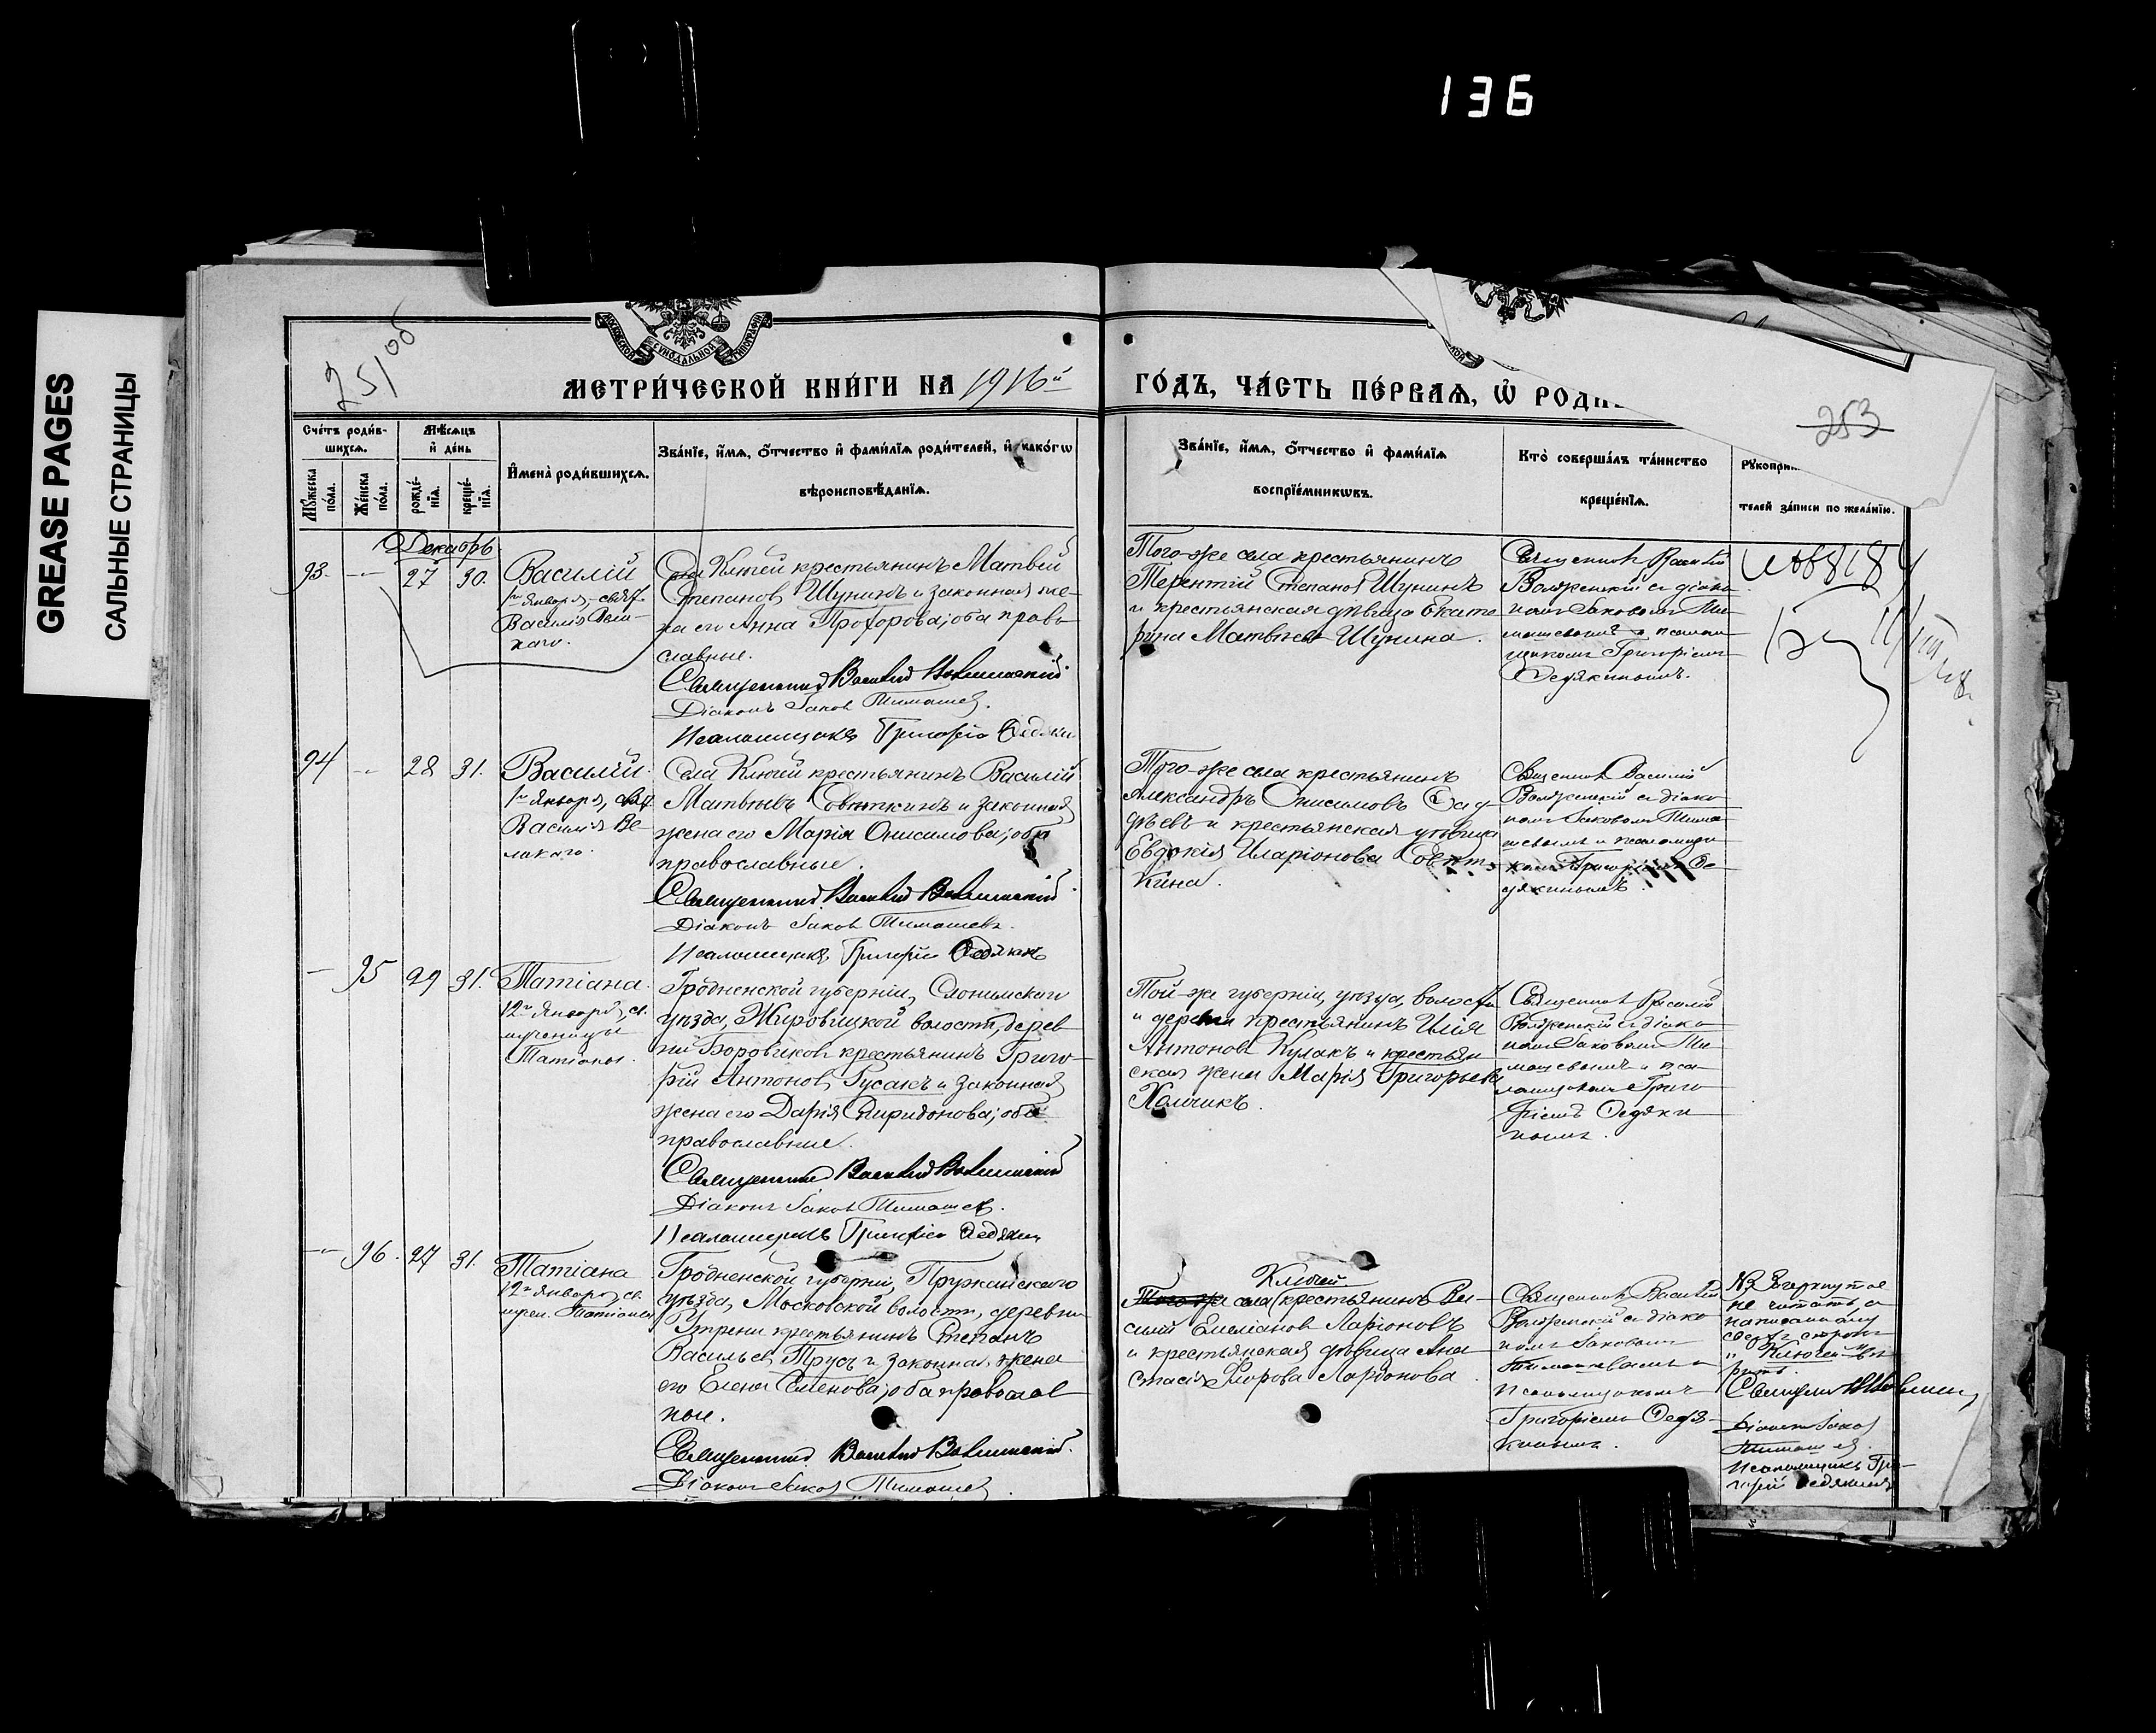 136
GREASE PAGES
САЛЬНЫЕ СТРАНИЦЫ
251 об
253
МЕТРИ́ЧЕСКОЙ КНИ́ГИ НА 1916й
ГО́ДЪ, ЧА́СТЬ ПЕ́РВАѦ, Ѽ РОДИ
Сче́тъ роди́в-
шихсѧ.
Мѣ́сѧцъ
и҆ де́нь
Мꙋ́жеска
по́ла.
Же́нска
по́ла.
рожде́-
нїѧ.
креще́-
нїѧ.
И҆мена̀ роди́вшихсѧ.
Зва́нїе, и҆́мѧ, ѻ҆́тчество и҆ фами́лїѧ роди́телей, и҆ како́гѡ
вѣроисповѣ́данїѧ.
Зва́нїе, и҆́мѧ, ѻ҆́тчество и҆ фами́лїѧ
воспрїе́мникѡвъ.
Кто̀ соверша́лъ та́инство
креще́нїѧ.
телей за́писи по жела́нїю.
Декабрь
93. 27 30.
Василій
1го Января, свят.
Василія Вели-
каго.
Села Ключей крестьянинъ Матвей
Степановъ Шунинъ и законная же-
на его Анна Прохорова; оба право
славные.
Священникъ Василій
Діаконъ Іаковъ Тимашев.
Псаломщикъ Григорій Седякин
Того-же села крестьянинъ
Терентій Степанов Шунинъ
и крестьянская дѣвица Екате
рина Матвѣева Шунина.
Священникъ Василій
съ діако
номъ Іаковомъ Ти-
машевымъ и псалом
щикомъ Григоріемъ
Седякинымъ.
94 28 31.
Василій.
1го Января, свят.
Василія Ве
ликаго.
Села Ключей крестьянинъ Василій
Матвѣевъ Совѣткинъ и законная
жена его Марія Онисимова; оба
православные.
Священникъ Василій
Діаконъ Іаковъ Тимашевъ.
Псаломщикъ Григорій Седякинъ
Того-же села крестьянинъ
Александръ Онисимовъ
и крестьянская дѣвица
Евдокія Иларіонова Совѣт-
кина.
Священникъ Василій
съ діако
номъ Іаковомъ Тима
шевымъ и псаломщи
комъ Григоріемъ Се
дякинымъ.
95 29 31.
Татіана.
12го Января, св.
мученицы
Татіаны.
Гродненской губерніи, Слонимскаго
уѣзда, Жировицкой волости, дерев
ни Боровиковъ крестьянинъ Григо-
рій Антоновъ Гусакъ и законная
жена его Дарія Спиридонова; оба
православные.
Священникъ Василій
Діаконъ Іаковъ Тимашев.
Псаломщикъ Григорій Седякин
Той-же губерніи, уѣзда, волости
и деревни крестьянинъ Илія
Антоновъ Кулакъ и крестьян
ская жена Марія Григорьева
Холчикъ.
Священникъ Василій
съ діако
номъ Іаковомъ Ти-
машевымъ и пса
ломщикомъ Григо
ріемъ Седяки
нымъ.
96. 27 31.
Татіана
12го Января, св.
мучен. Татіаны
Гродненской губерніи, Пружанскаго
уѣзда, Московской волости, деревни
крестьянинъ Степанъ
Васильев Трусъ и законная жена
его Елена Семенова; оба православ
ные.
Священникъ Василій
Діаконъ Іаковъ Тимашев
Ключей
Того-же села крестьянинъ Ва-
силій Емеліановъ Ларіоновъ
и крестьянская дѣвица Ана
стасія Флорова Ларіонова.
Священникъ Василій
съ діако
номъ Іаковомъ
Тимашевымъ и
псаломщикомъ
Григоріемъ Седя-
кинымъ.
NB Зачеркнутое
не читать, а
написанному
сверх строки
„Ключей" вѣ
рить.
Діаконъ Іаков
Тимашев.
Псаломщикъ Гри-
горій Седякинъ